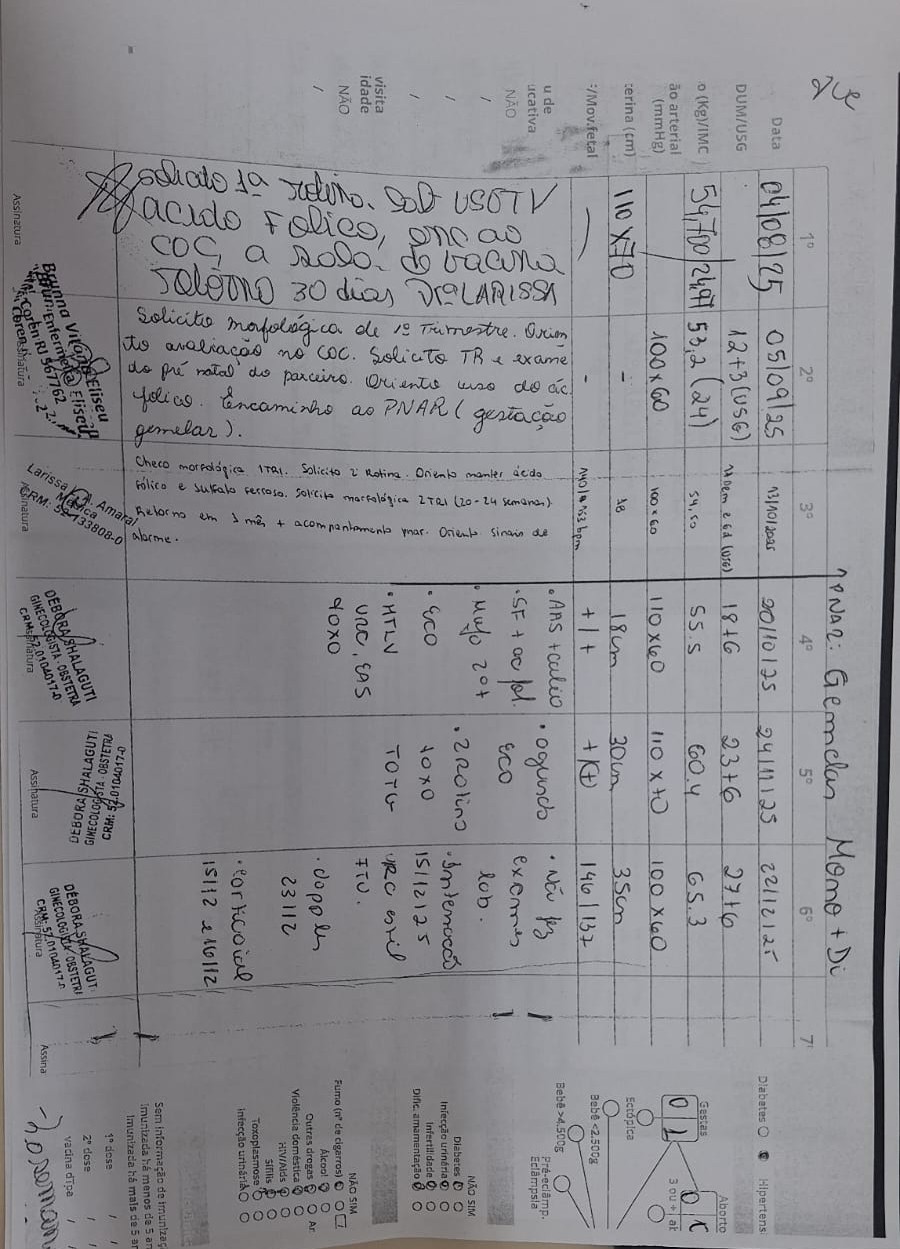 PNAR: Gemelar Mono + Di
1º 2º 3º 4º 5º 6º 7
Data 04/08/25 05/09/25 13/10/2025 20/10/25 24/11/25 22/12/25
DUM/USG 12+3 (USG) (USG) 18+6 23+6 27+6
o (Kg)/IMC 54,700/24,9 53,2 (24) 54,50 55.5 60.4 65.3
ão arterial (mmHg) 100x60 100x60 110x60 110x70 100x60
terina (cm) 110x70 - 18 18cm 30cm 35cm
:/Mov.fetal - +/+ +/(+) 146/137
u de
ucativa
NÃO
/
/
/
visita
idade
NÃO
/
Solicito 1ª rotina. Sol USGTV
acido Folico,
COC, vacina
retorno 30 dias Drª LARISSA
Solicito morfológica de 1º Trimestre. Orien
to avaliação no COC. Solicito TR e exame
do pré natal do parceiro. Oriento uso do ác.
fólico. Encaminho ao PNAR (gestação
gemelar).
Checo morfológica 1TRI. Solicito 2ª Rotina. Oriento manter ácido
fólico e sulfato ferroso. Solicito morfológica 2TRI (20-24 semanas)
Retorno em 1 mês + acompanhamento pnar. Oriento sinais de
alarme.
• AAS + calcio
• SF + ac fol.
• Mufo 2ot
• ECO
• HTLV
URC, EAS
• Aguardo
ECO
• 2 Rotina
toxo
TOTG
• Não fez
exames
lab.
• Internação
15/12/25
URC
ITU.
• doppler
23/12
• corticoide
15/12 e 16/12
Assinatura
Bruna Vilaça Eliseu
Enfermeira
Coren RJ 567762
Larissa Amaral
Médica
CRM: 52-133808-0
DÉBORA SHALAGUTI
GINECOLOGISTA - OBSTETRA
CRM: 52.0104017-0
Assinatura
DÉBORA SHALAGUTI
GINECOLOGISTA - OBSTETRA
CRM: 52.0104017-0
Assinatura
DÉBORA SHALAGUTI
GINECOLOGISTA - OBSTETRA
CRM: 52.0104017-0
Assinatura
Assina
Diabetes Hipertens
Gestas
0 1
Aborto
0
3 ou + ab
Ectópica
Bebê <2.500g
Bebê >4.500g
Pré-eclâmp.
Eclâmpsia
NÃO SIM
Diabetes
Infecção urinária
Infertilidade
Dific. amamentação
NÃO SIM
Fumo (nº de cigarros)
Álcool
Outras drogas
Violência doméstica
HIV/Aids
Sífilis
Toxoplasmose
Infecção urinária
Ar
Sem informação de imunizaç
Imunizada há menos de 5 an
Imunizada há mais de 5 an
1ª dose / /
2ª dose / /
vacina dTpa / /